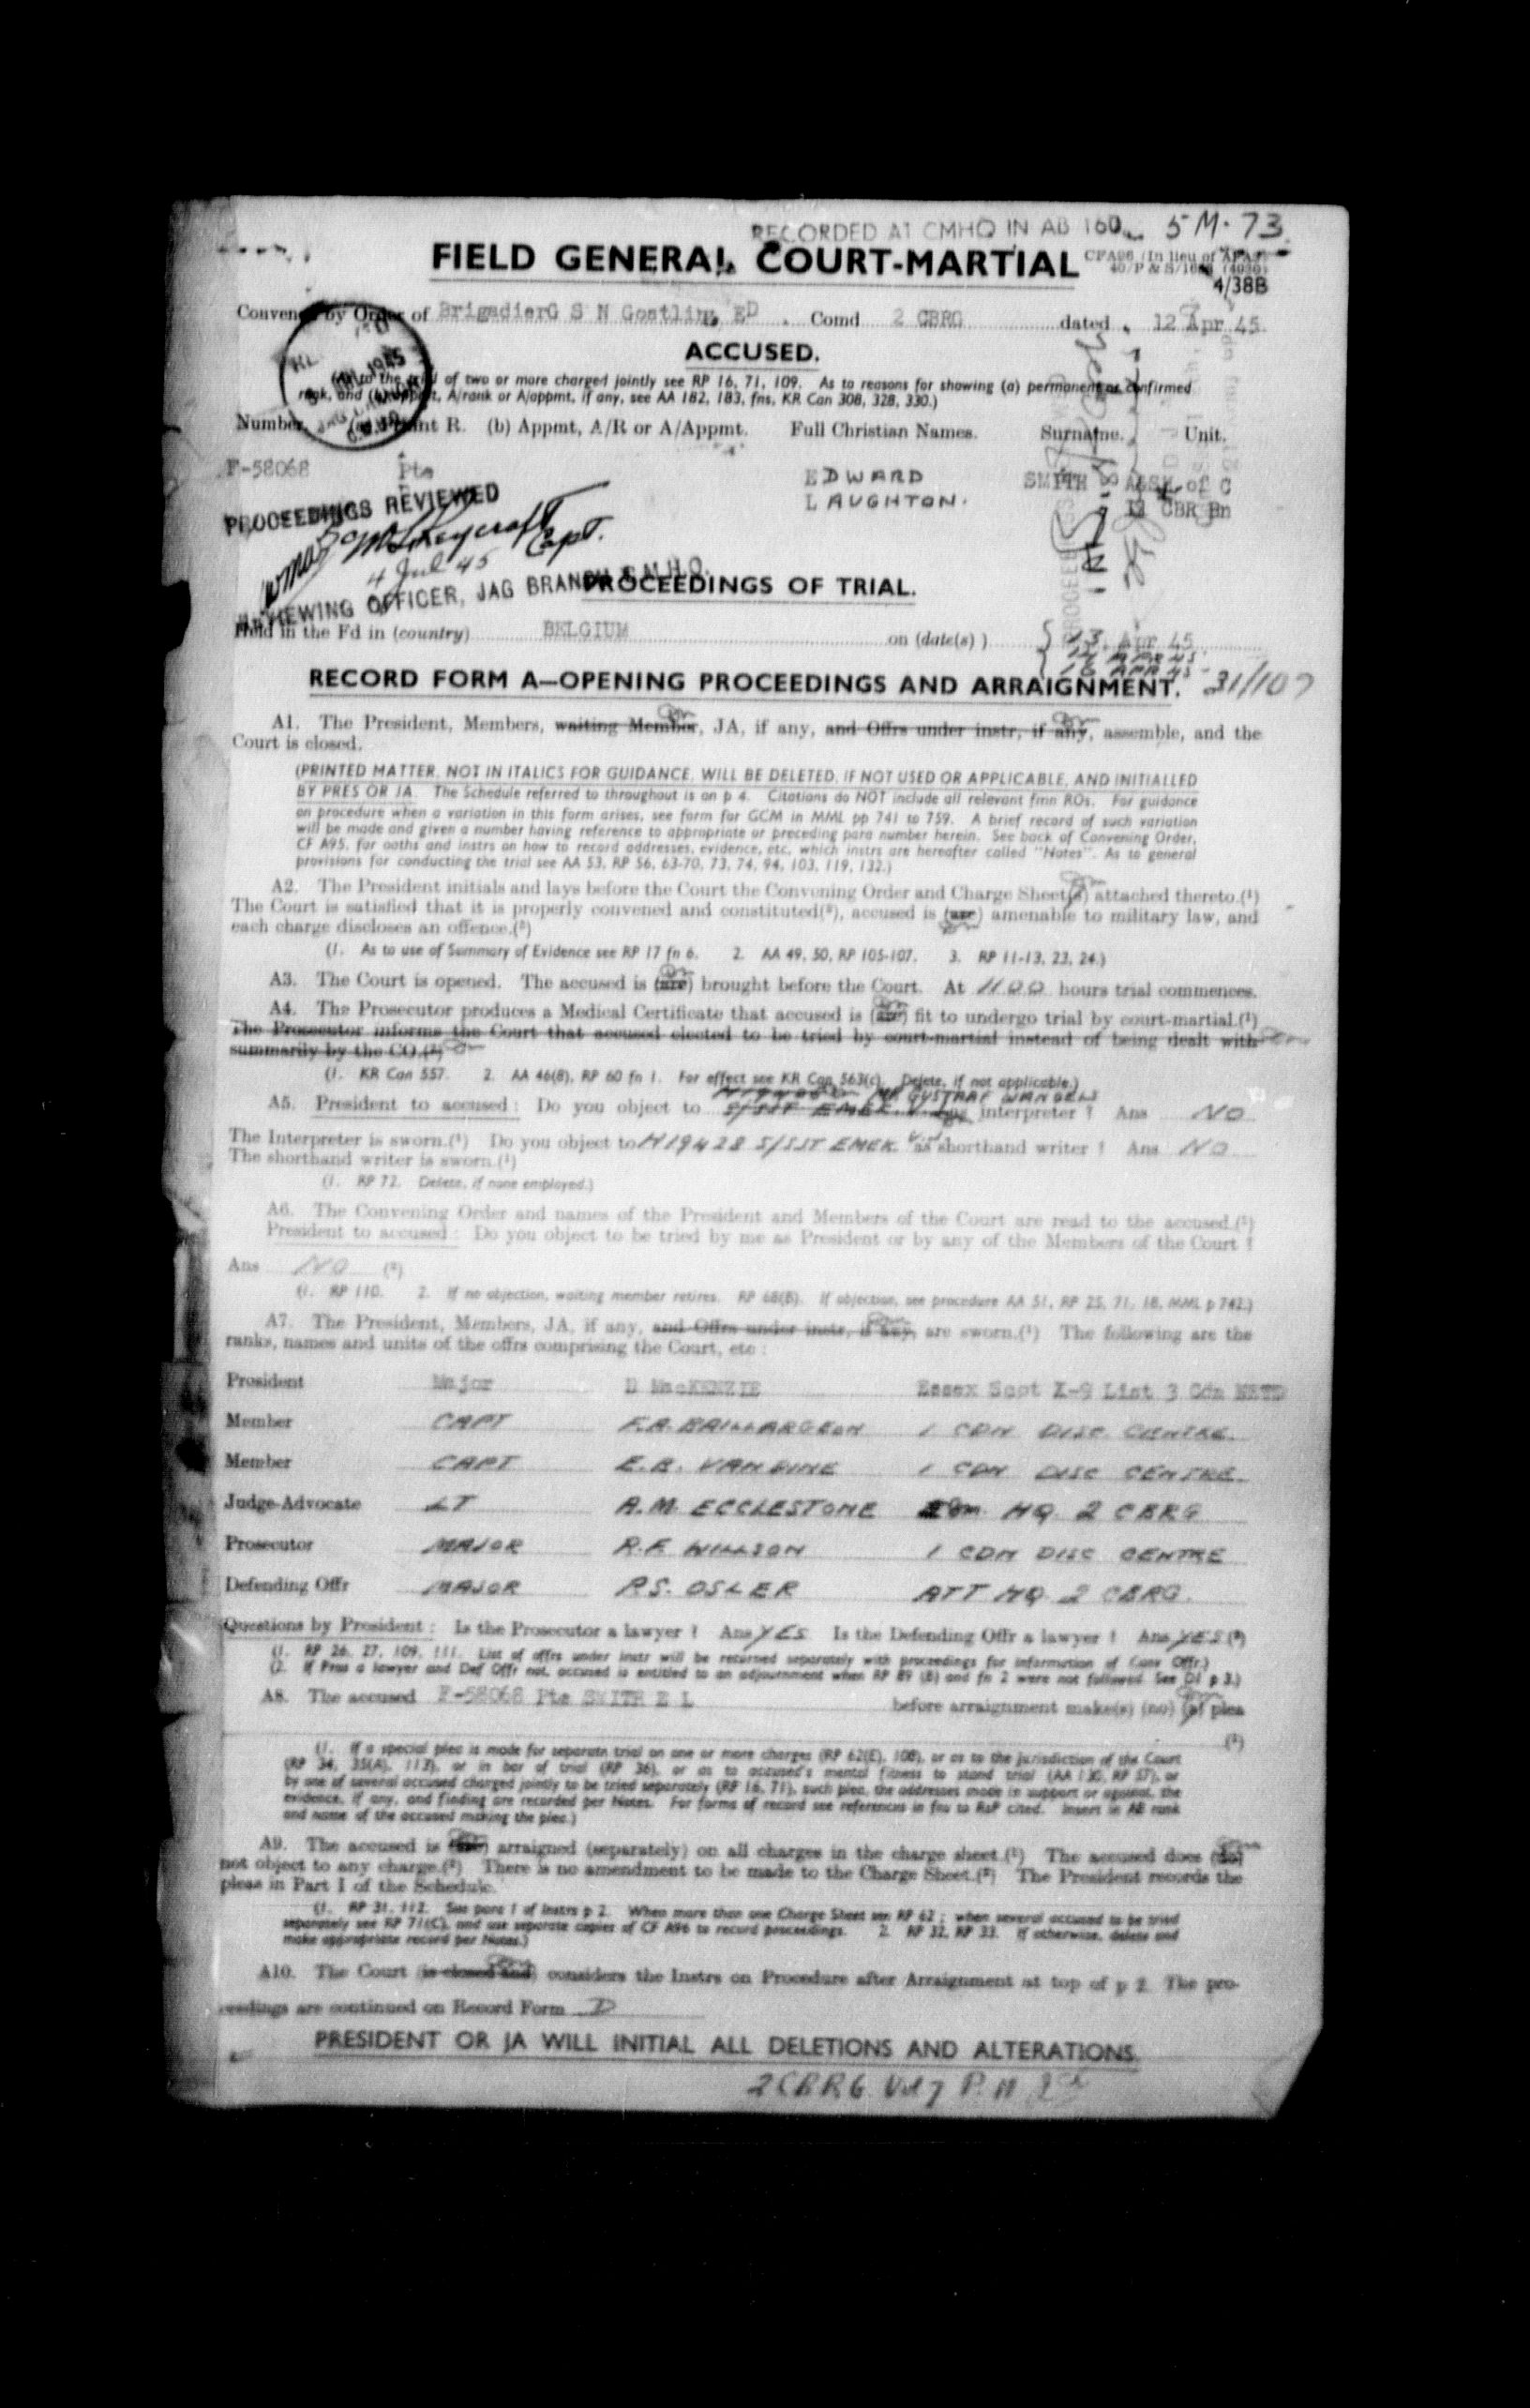 RECORDED AT CMHQ IN AB 160 5 M. 73
FIELD GENERAL COURT-MARTIAL
CFA96 (In lieu of AFA3)
4/38B
Convened by Order of Brigadier G S N Gostling, ED. Comd 2 CBRG dated 12 Apr 45.
ACCUSED.
to the trial of two or more charged jointly see RP 16, 71, 109. As to reasons for showing (a) permanent or confirmed
rank, and (b) appmt, A/rank or A/appmt, if any, see AA 182, 183, fns, KR Can 308, 328, 330.)
Number. R. (b) Appmt, A/R or A/Appmt. Full Christian Names. Surname. Unit.
F-58068 Pte EDWARD SMITH of C
LAUGHTON. CBR Bn
PROCEEDINGS REVIEWED
Capt.
4 Jul 45
REVIEWING OFFICER, JAG BRANCH C.M.H.Q.
PROCEEDINGS OF TRIAL.
Held in the Fd in (country) BELGIUM on (date(s) ) 13 Apr 45
14 APR 45
16 APR 45
RECORD FORM A—OPENING PROCEEDINGS AND ARRAIGNMENT. 31/107
A1. The President, Members, waiting Member, JA, if any, and Offrs under instr, if any, assemble, and the
Court is closed.
(PRINTED MATTER, NOT IN ITALICS FOR GUIDANCE, WILL BE DELETED, IF NOT USED OR APPLICABLE, AND INITIALLED
BY PRES OR JA. The Schedule referred to throughout is on p 4. Citations do NOT include all relevant fmn ROs. For guidance
on procedure when a variation in this form arises, see form for GCM in MML pp 741 to 759. A brief record of such variation
will be made and given a number having reference to appropriate or preceding para number herein. See back of Convening Order,
CF A95, for oaths and instrs on how to record addresses, evidence, etc, which instrs are hereafter called "Notes". As to general
provisions for conducting the trial see AA 53, RP 56, 63-70, 73, 74, 94, 103, 119, 132.)
A2. The President initials and lays before the Court the Convening Order and Charge Sheet(s) attached thereto.(1)
The Court is satisfied that it is properly convened and constituted(2), accused is (are) amenable to military law, and
each charge discloses an offence.(3)
(1. As to use of Summary of Evidence see RP 17 fn 6. 2. AA 49, 50, RP 105-107. 3. RP 11-13, 23, 24.)
A3. The Court is opened. The accused is (are) brought before the Court. At 1100 hours trial commences.
A4. The Prosecutor produces a Medical Certificate that accused is (are) fit to undergo trial by court-martial.(1)
The Prosecutor informs the Court that accused elected to be tried by court-martial instead of being dealt with
summarily by the CO.(2)
(1. KR Can 557. 2. AA 46(8), RP 60 fn 1. For effect see KR Can 563(c). Delete, if not applicable.)
MR GUSTRAF WANGELI
A5. President to accused: Do you object to S/SJT EMEK as interpreter? Ans NO
The Interpreter is sworn.(1) Do you object to H19428 S/SJT EMEK as shorthand writer? Ans NO
The shorthand writer is sworn.(1)
(1. RP 72. Delete, if none employed.)
A6. The Convening Order and names of the President and Members of the Court are read to the accused.(1)
President to accused: Do you object to be tried by me as President or by any of the Members of the Court?
Ans NO (2)
(1. RP 110. 2. If no objection, waiting member retires. RP 68(B). If objection, see procedure AA 51, RP 25, 71, 18, MML p 742.)
A7. The President, Members, JA, if any, and Offrs under instr, if any, are sworn.(1) The following are the
ranks, names and units of the offrs comprising the Court, etc:
President Major D MacKENZIE Essex Scot X-9 List 3 Cdn
Member CAPT F.A. BAILLARGEON 1 CDN DISC CENTRE
Member CAPT E.B. VANDINE 1 CDN DISC CENTRE
Judge-Advocate LT A.M. ECCLESTONE HQ 2 CBRG
Prosecutor MAJOR R.F. WILLSON 1 CDN DISC CENTRE
Defending Offr MAJOR P.S. OSLER ATT HQ 2 CBRG.
Questions by President: Is the Prosecutor a lawyer? Ans YES Is the Defending Offr a lawyer? Ans YES (2)
(1. RP 26, 27, 109, 111. List of offrs under instr will be returned separately with proceedings for information of Conv Offr.)
(2. If Pros a lawyer and Def Offr not, accused is entitled to an adjournment when RP 89 (B) and fn 2 were not followed. See D1 p 3.)
A8. The accused F-58068 Pte SMITH E L before arraignment make(s) (no) (a) plea
(1)
(1. If a special plea is made for separate trial on one or more charges (RP 62(E), 108), or as to the jurisdiction of the Court
(RP 34, 35(A), 113), or in bar of trial (RP 36), or as to accused's mental fitness to stand trial (AA 130, RP 57), or
by one of several accused charged jointly to be tried separately (RP 16, 71), such plea, the addresses made in support or against, the
evidence, if any, and finding are recorded per Notes. For forms of record see references in fns to RsP cited. Insert in A8 rank
and name of the accused making the plea.)
A9. The accused is (are) arraigned (separately) on all charges in the charge sheet.(1) The accused does (do)
not object to any charge.(2) There is no amendment to be made to the Charge Sheet.(2) The President records the
pleas in Part I of the Schedule.
(1. RP 31, 112. See para 1 of Instrs p 2. When more than one Charge Sheet see RP 62; when several accused to be tried
separately see RP 71(C), and use separate copies of CF A96 to record proceedings. 2. RP 32, RP 33. If otherwise, delete and
make appropriate record per Notes.)
A10. The Court (is closed and) considers the Instrs on Procedure after Arraignment at top of p 2. The pro-
ceedings are continued on Record Form D
PRESIDENT OR JA WILL INITIAL ALL DELETIONS AND ALTERATIONS.
2 CBRG Vol 7 P. 11